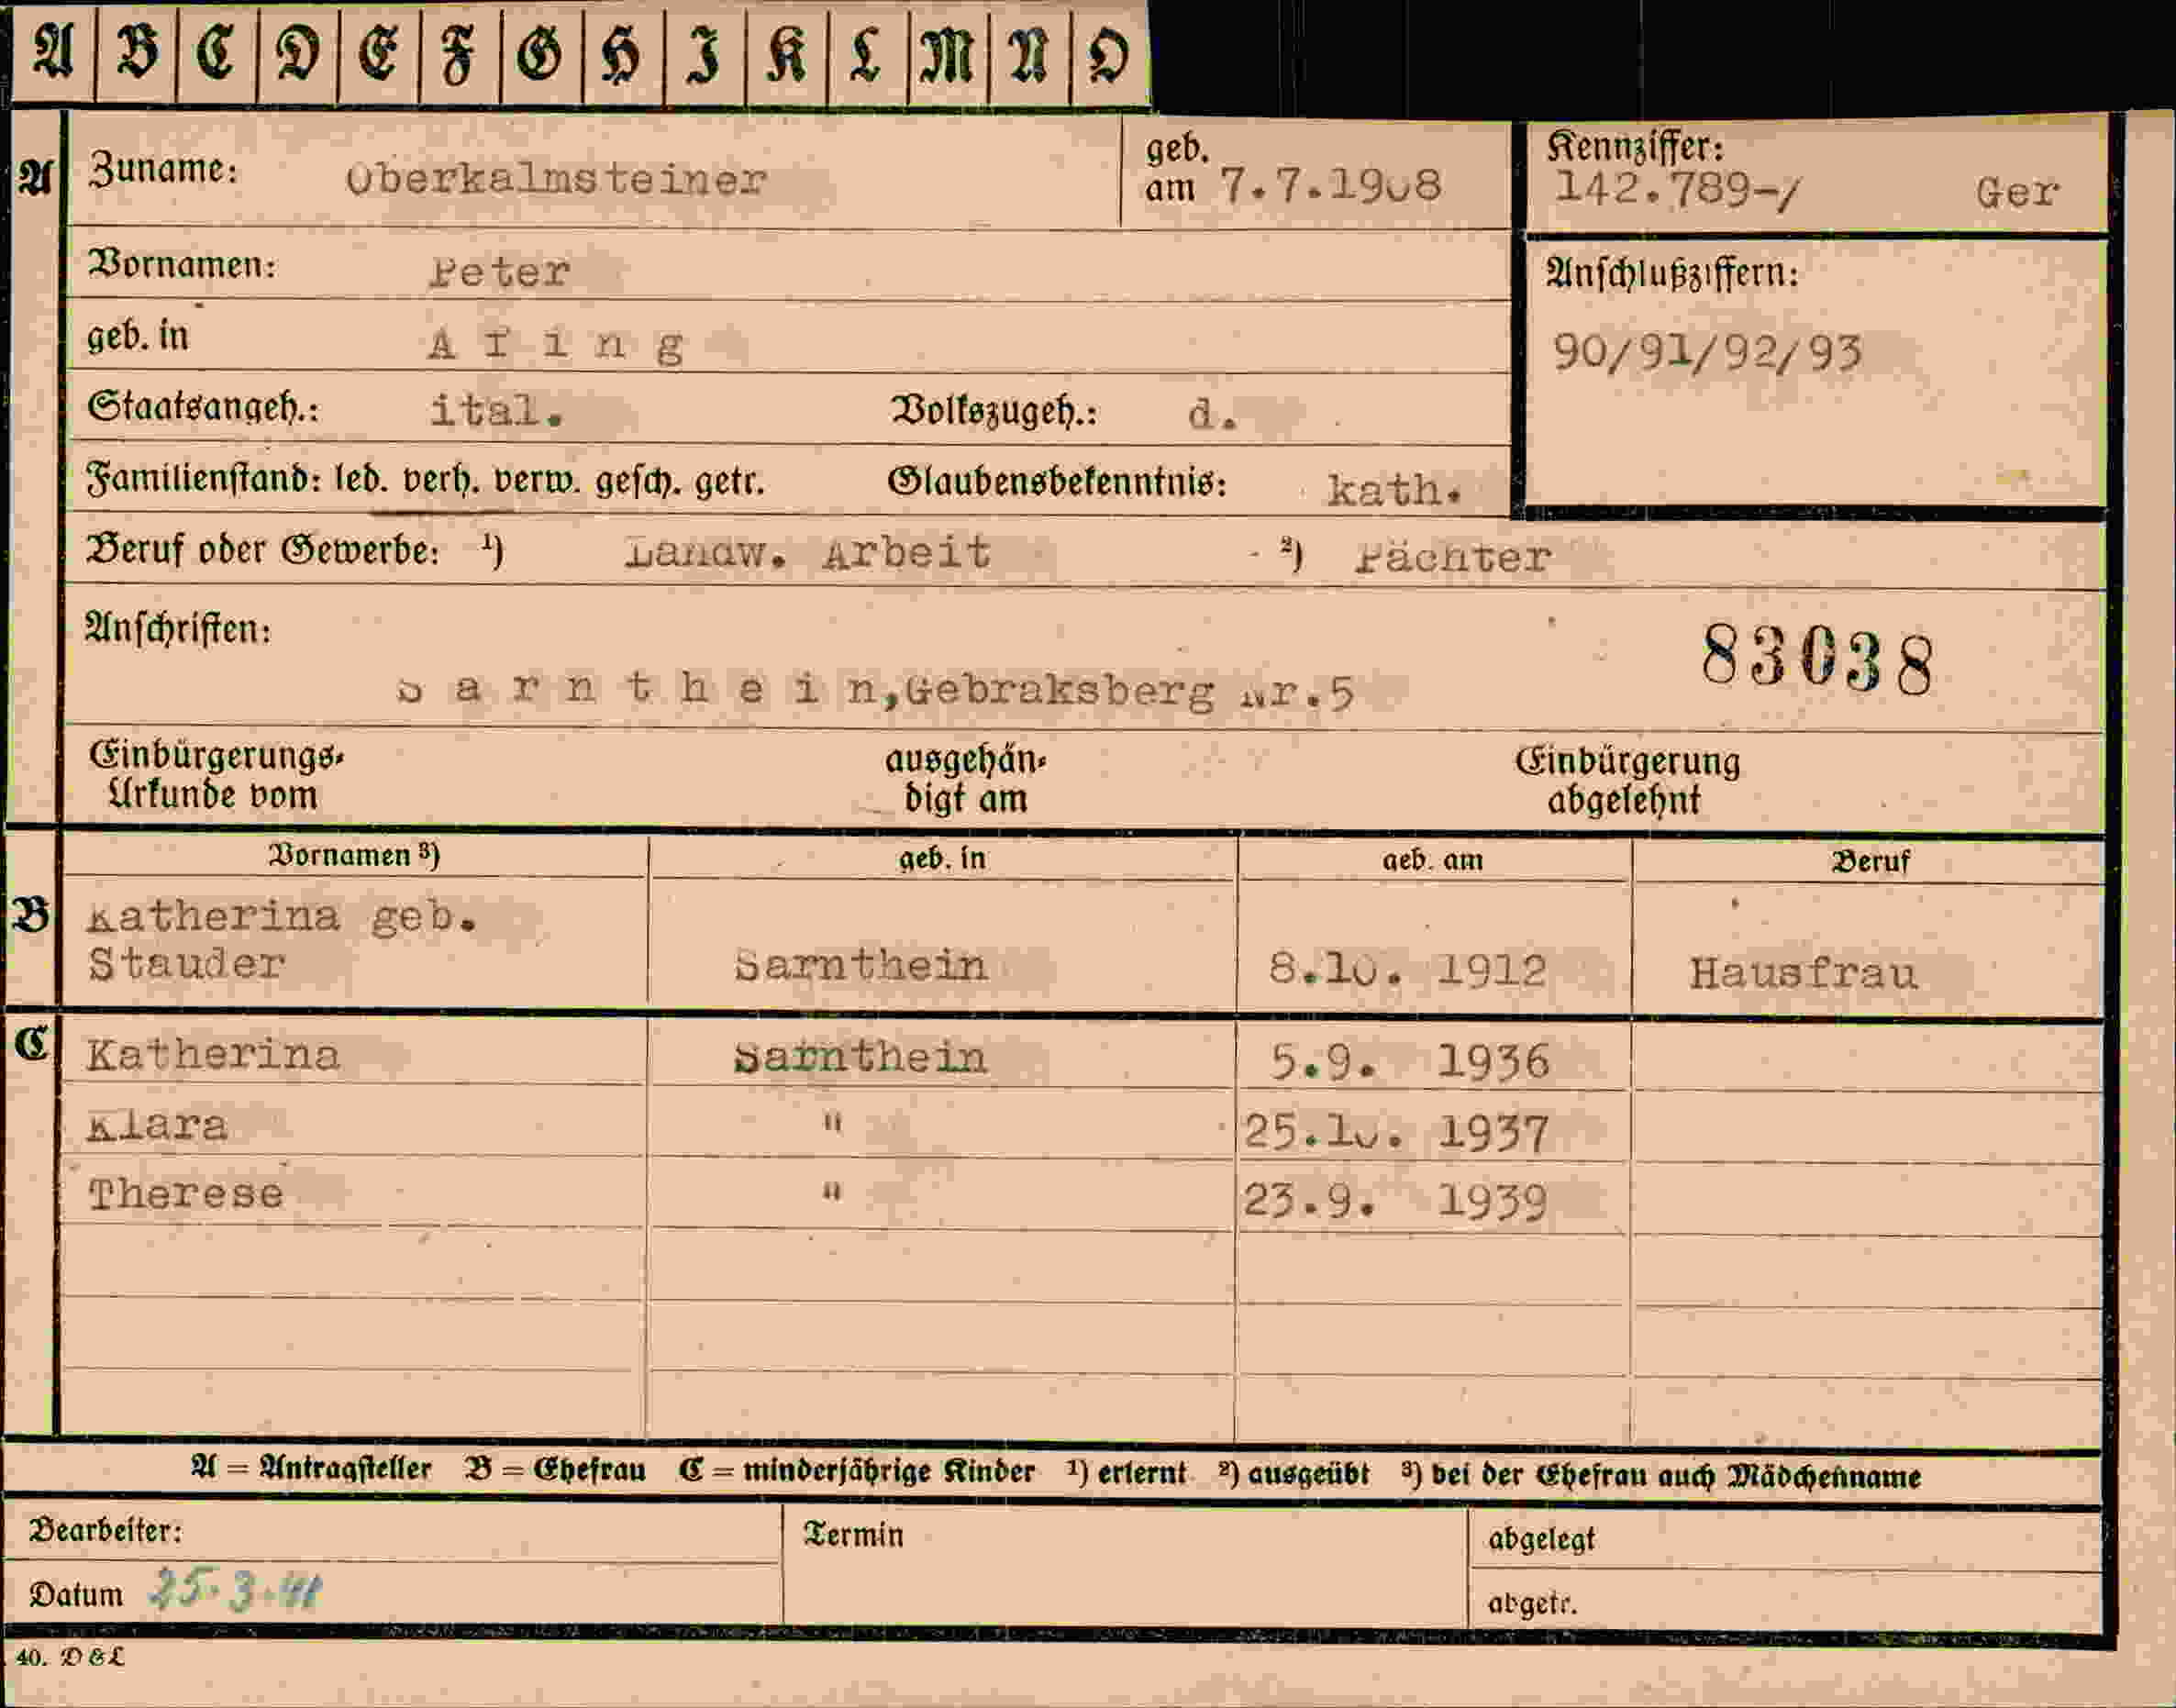 A B C D E F G H I K L M N O
A Zuname: Oberkalmsteiner geb. am 7.7.1908 Kennziffer: 142.789-/ Ger
Vornamen: Peter Anschlußziffern:
geb. in A f i n g 90/91/92/93
Staatsangeh.: ital. Volkszugeh.: d.
Familienstand: led. verh. verw. gesch. getr. Glaubensbekenntnis: kath.
Beruf oder Gewerbe: ¹) Landw. Arbeit ²) Pächter
Anschriften: 83038
S a r n t h e i n,Gebraksberg Nr.5
Einbürgerungs- ausgehän- Einbürgerung
Urkunde vom digt am abgelehnt
Vornamen ³) geb. in geb. am Beruf
B Katherina geb.
Stauder Sarnthein 8.10. 1912 Hausfrau
C Katherina Sarnthein 5.9. 1936
Klara " 25.10. 1937
Therese " 23.9. 1939
A = Antragsteller B = Ehefrau C = minderjährige Kinder ¹) erlernt ²) ausgeübt ³) bei der Ehefrau auch Mädchenname
Bearbeiter: Termin abgelegt
Datum 25.3.41 abgetr.
40. D & L